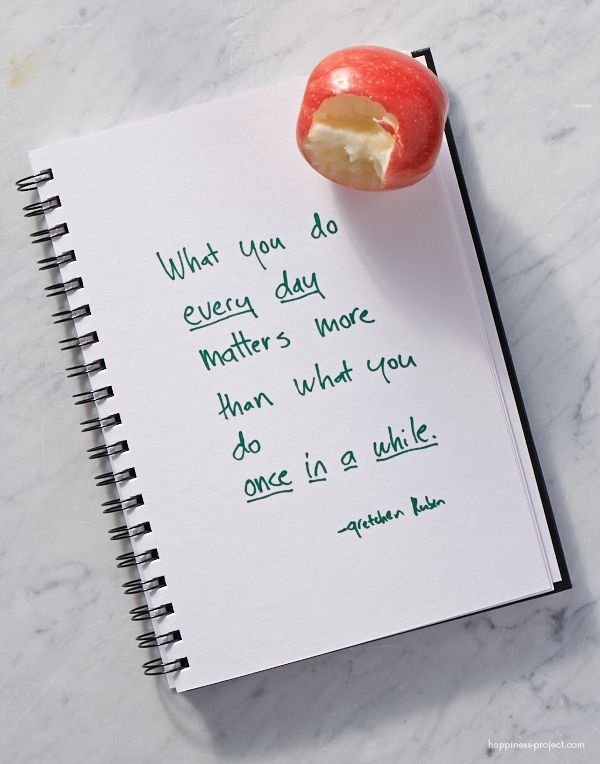 What you do
every day
matters more
than what you
do
once in a while.
-gretchen Rubin
happiness-project.com